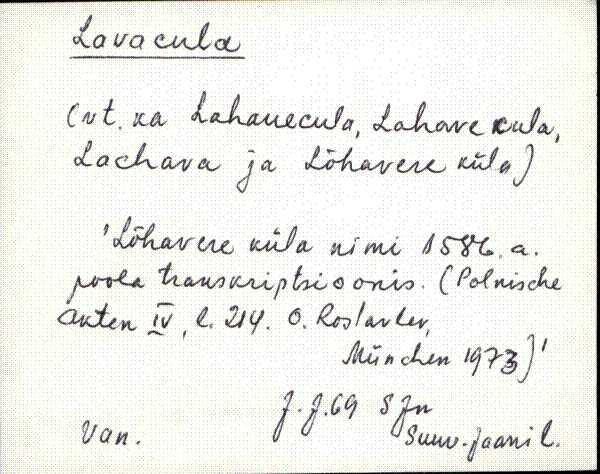 Lavacula
(vt. ka Lahauecula, Lahave cula,
Lachava ja Lõhavere küla)
'Lõhavere küla nimi 1586. a.
poola transkriptsioonis. (Polnische
Akten IV, l. 214. O. Roslavlev,
München 1973)'
J. J. 69 SJn
Van. Suur-Jaani l.